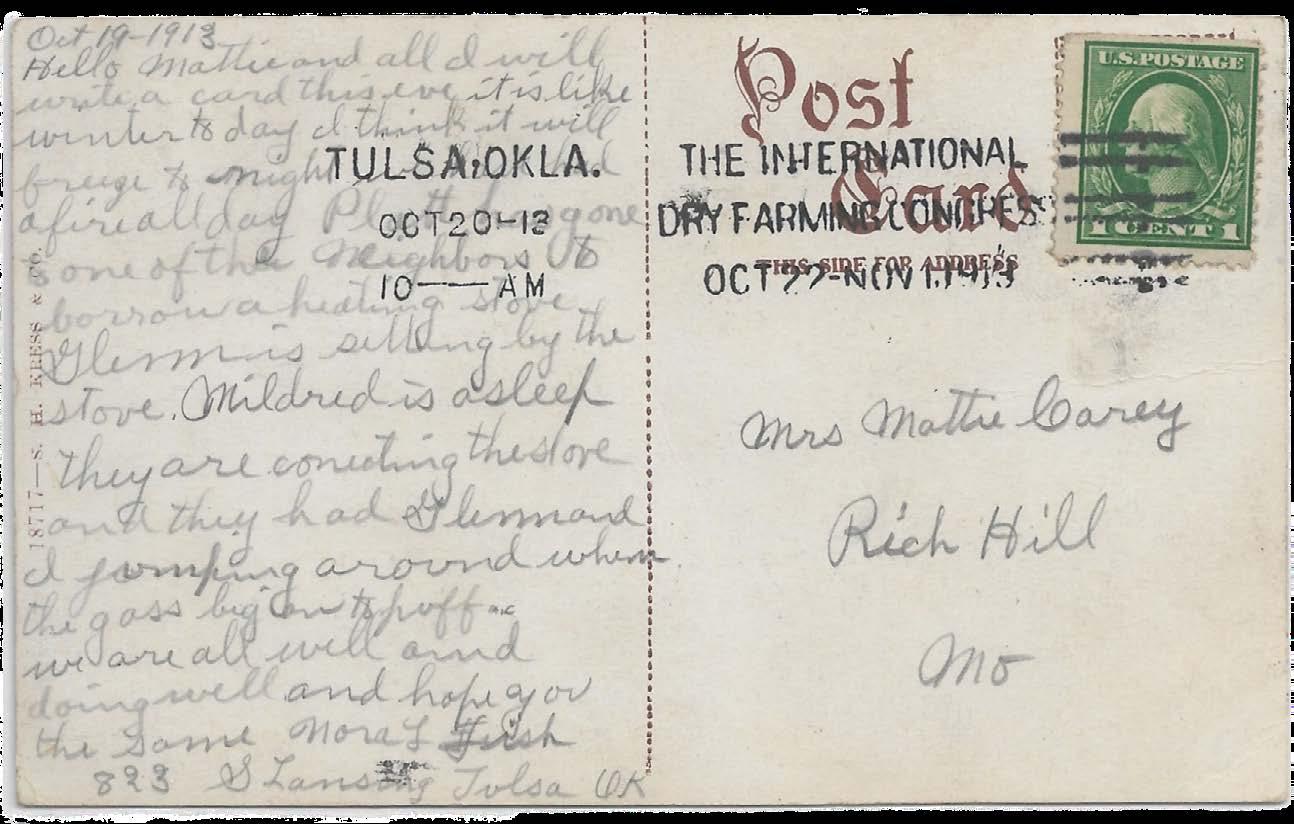 Oct 19-1913
Hello Mattie and all I will
write a card this eve it is like
winter to day I think it will
freeze to night had
a fire all day gone
to one of the Neighbors to
borrow a heating stove
Glenn is setting by the
stove. Mildred is asleep
they are conecting the stove
and they had Glenn and
I jumping around when
the gass big an to poff
we are all well and
doing well and hope you
the same Nora L Fish
823 S Lansing Tulsa OK
18717—S. H. KRESS & CO.
TULSA, OKLA.
OCT 20-13
10——AM
Post
Card
THIS SIDE FOR ADDRESS
THE INTERNATIONAL
DRY FARMING CONGRESS
OCT 22-NOV 1, 1913
U.S. POSTAGE
1 CENT 1
Mrs Mattie Carey
Rich Hill
Mo